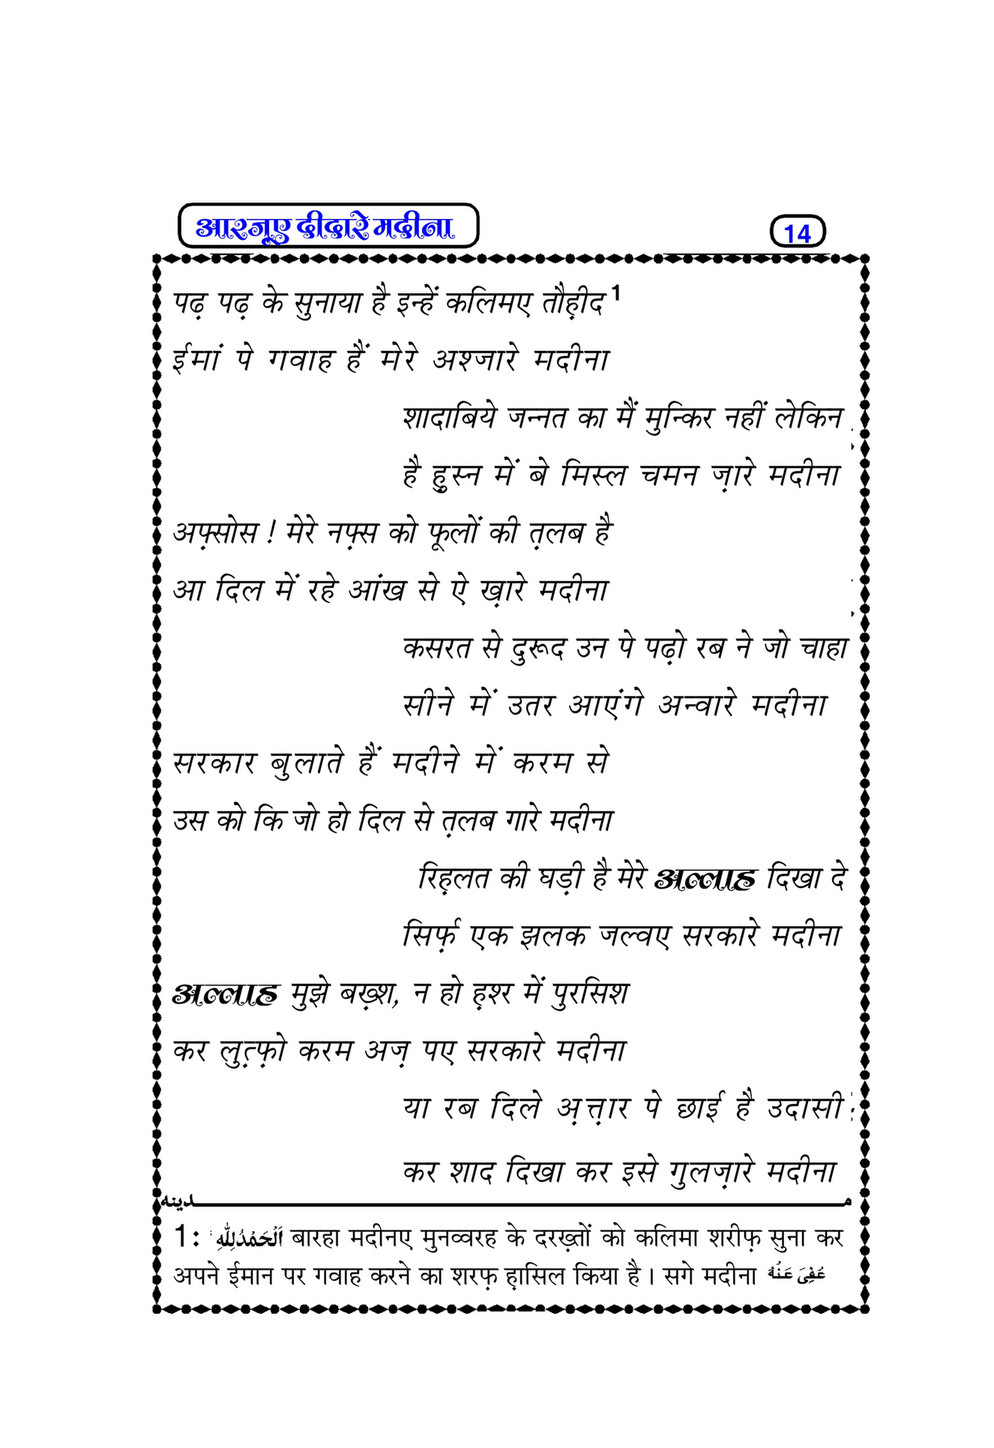 आरज़ूए दीदारे मदीना
14
पढ़ पढ़ के सुनाया है इन्हें कलिमए तौह़ीद 1
ईमां पे गवाह हैं मेरे अश्जारे मदीना
शादाबिये जन्नत का मैं मुन्किर नहीं लेकिन
है ह़ुस्न में बे मिस्ल चमन ज़ारे मदीना
अफ़्सोस ! मेरे नफ़्स को फूलों की त़लब है
आ दिल में रहे आंख से ऐ ख़ारे मदीना
कसरत से दुरूद उन पे पढ़ो रब ने जो चाहा
सीने में उतर आएंगे अन्वारे मदीना
सरकार बुलाते हैं मदीने में करम से
उस को कि जो हो दिल से त़लब गारे मदीना
रिह़लत की घड़ी है मेरे अल्लाह दिखा दे
सिर्फ़ एक झलक जल्वए सरकारे मदीना
अल्लाह मुझे बख़्श, न हो ह़श्र में पुरसिश
कर लुत़्फ़ो करम अज़ पए सरकारे मदीना
या रब दिले अ़त्त़ार पे छाई है उदासी
कर शाद दिखा कर इसे गुलज़ारे मदीना
مـــدینه
1: اَلْحَمْدُلِلّٰهِ बारहा मदीनए मुनव्वरह के दरख़्तों को कलिमा शरीफ़ सुना कर
अपने ईमान पर गवाह करने का शरफ़ ह़ासिल किया है । सगे मदीना عُفِیَ عَنْهُ